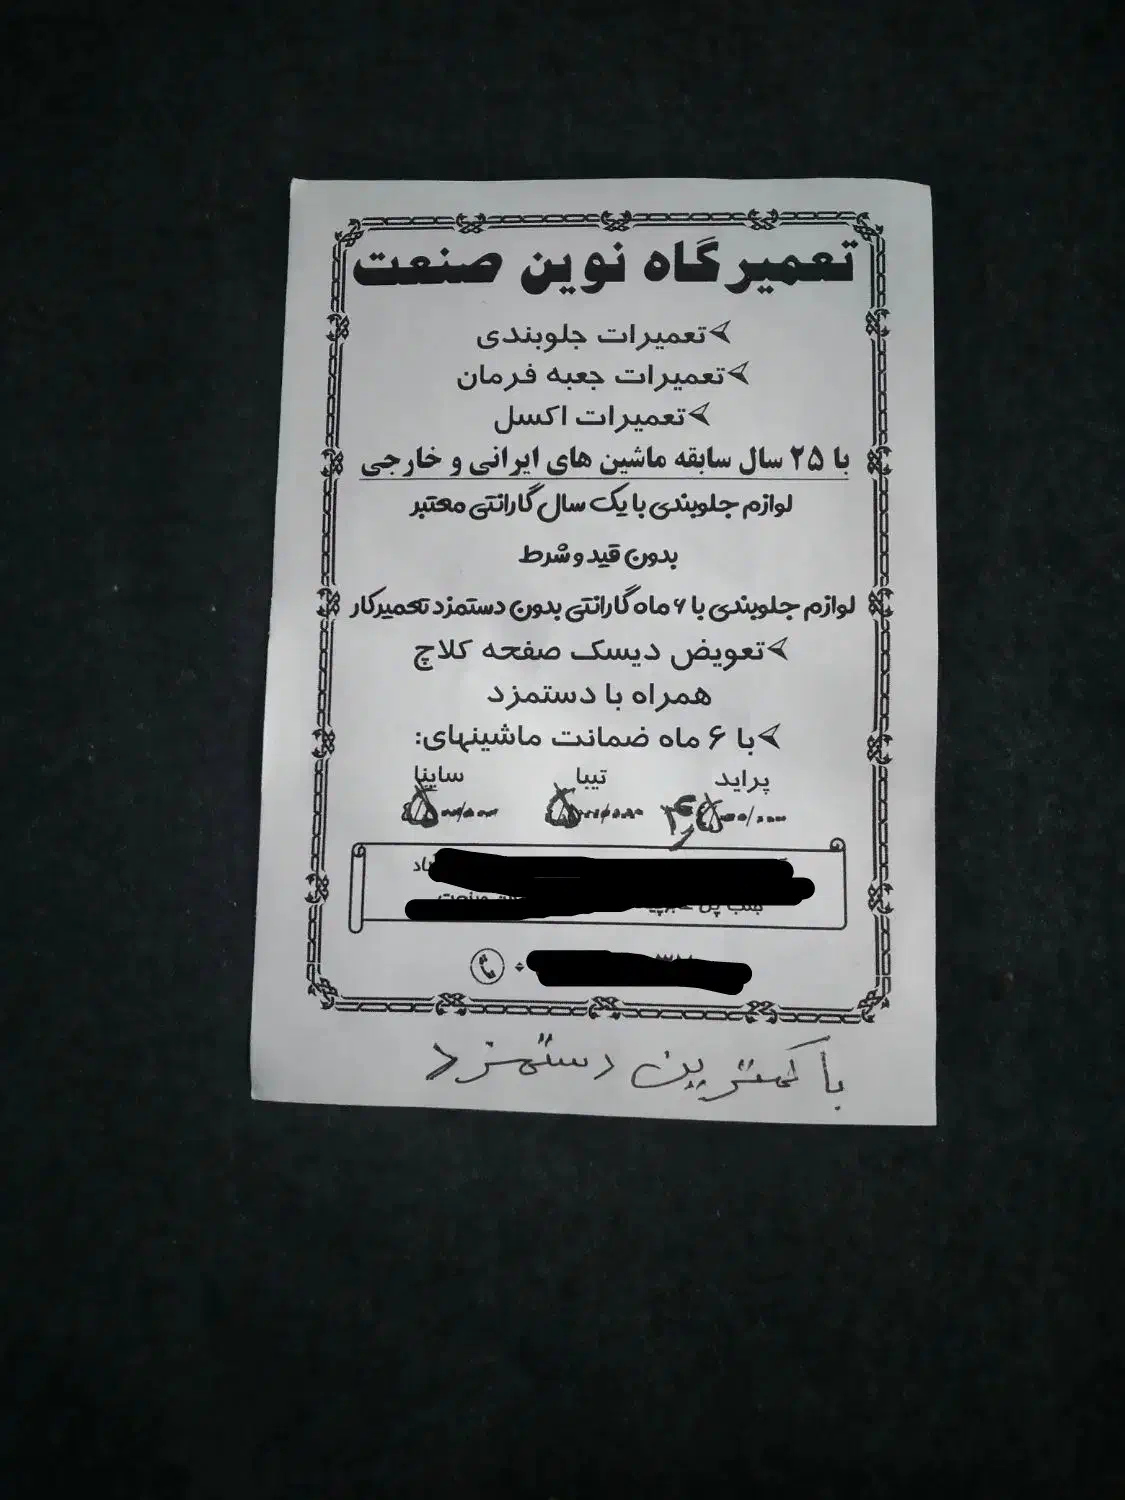 تعمیرگاه نوین صنعت
تعمیرات جلوبندی
تعمیرات جعبه فرمان
تعمیرات اکسل
با ۲۵ سال سابقه ماشین های ایرانی و خارجی
لوازم جلوبندی با یک سال گارانتی معتبر
بدون قید و شرط
لوازم جلوبندی با ۶ ماه گارانتی بدون دستمزد تعمیرکار
تعویض دیسک صفحه کلاچ
همراه با دستمزد
با ۶ ماه ضمانت ماشینهای:
پراید تیبا ساینا
با کمترین دستمزد